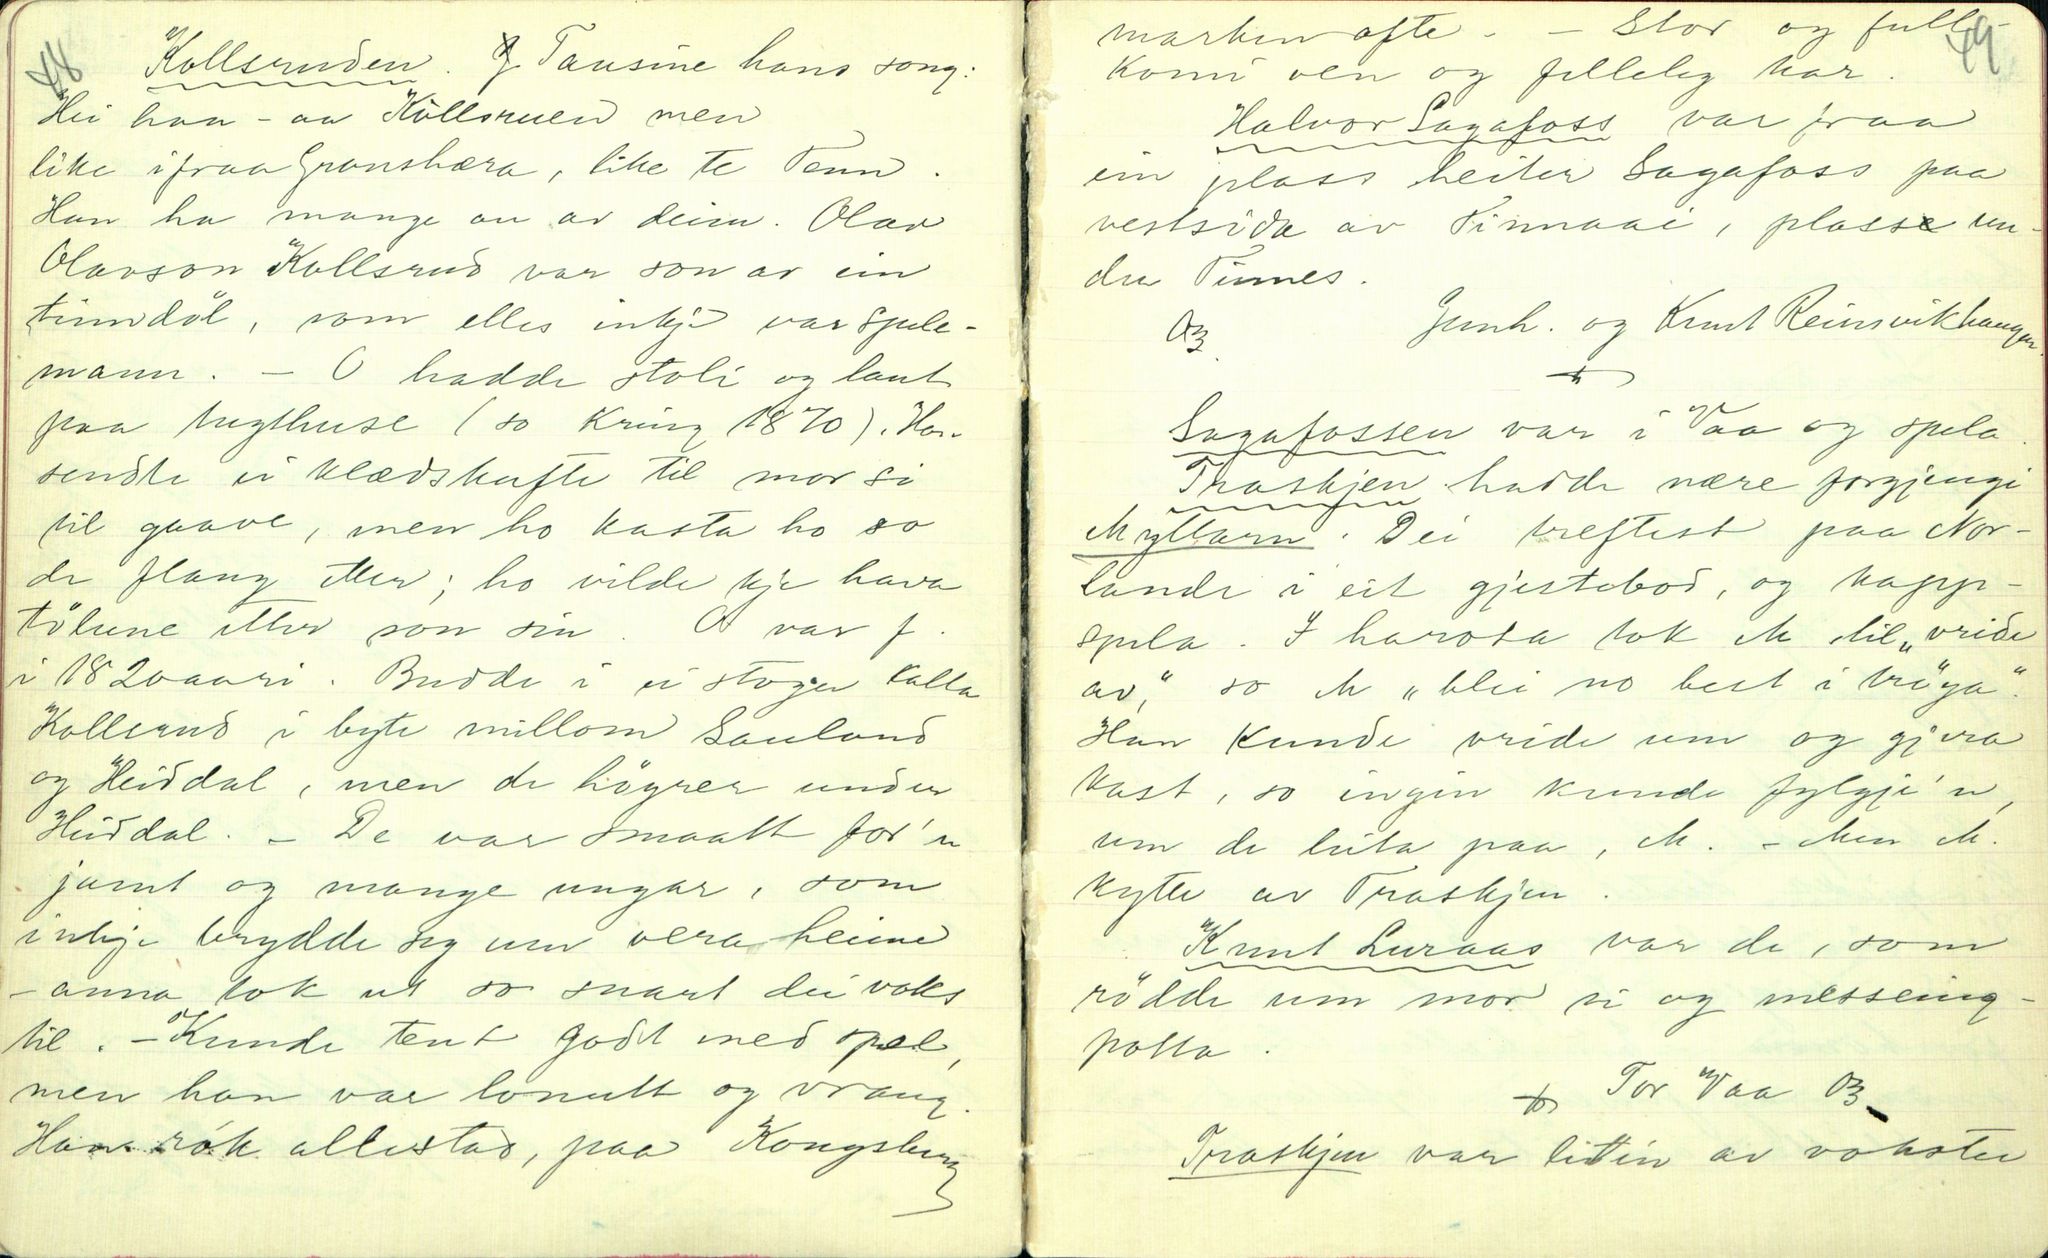 48
Kollsruden. Tausine hans song:
Hei haa - aa Kollsruen men
like ifraa Granshera, like te Tenn.
Han ha mange an av deim. Olav
Olavson Kollsrud var son av ein
tinndøl, som elles inkje var spele-
mann. - O hadde stoli og laut
paa tugthuse (so kring 1870). Han
sendte ei klædskufte til mor si
til gaave, men ho kasta ho so
de flaug etter; ho vilde kje hava
tölune etter son sin. O var f.
i 1820aari. Budde i ei stoge kalla
Kollsrud i byte millom Sauland
og Heiddal, men de högrer under
Heiddal. - De var smaatt for'n
jamt og mange ungar, som
inkje brydde seg um vera heime
- anna tok ut so snart dei voks
til. - Kunde tent godt med spel,
men han var lonutt og vrang.
Han rök allestad, paa Kongsberg
49
marken ofte. - Stor og full-
komi ven og felleleg kar.
Halvor Sagafoss var fraa
ein plass heiter Sagafoss paa
vestsida av Tinnaai, plass un-
der Tinnes.
Gunh. og Knut Reinsvikhaugen.
Sagafossen var i Vaa og spela.
Traskjen hadde nære forgjengi
Myllarn. Dei treftest paa Nor-
lande i eit gjestebod, og kapp-
spela. I harosta tok M til "vride
av," so M "blei no best i tröga".
Han kunde vride um og gjera
kast, so ingin kunde fylgje'n,
um de leita paa, M. - Men M.
kytte av Traskjen.
Knut Luraas var de, som
rödde um mor si og messeing-
potta.
Tor Vaa
Traskjen var litin av vokster